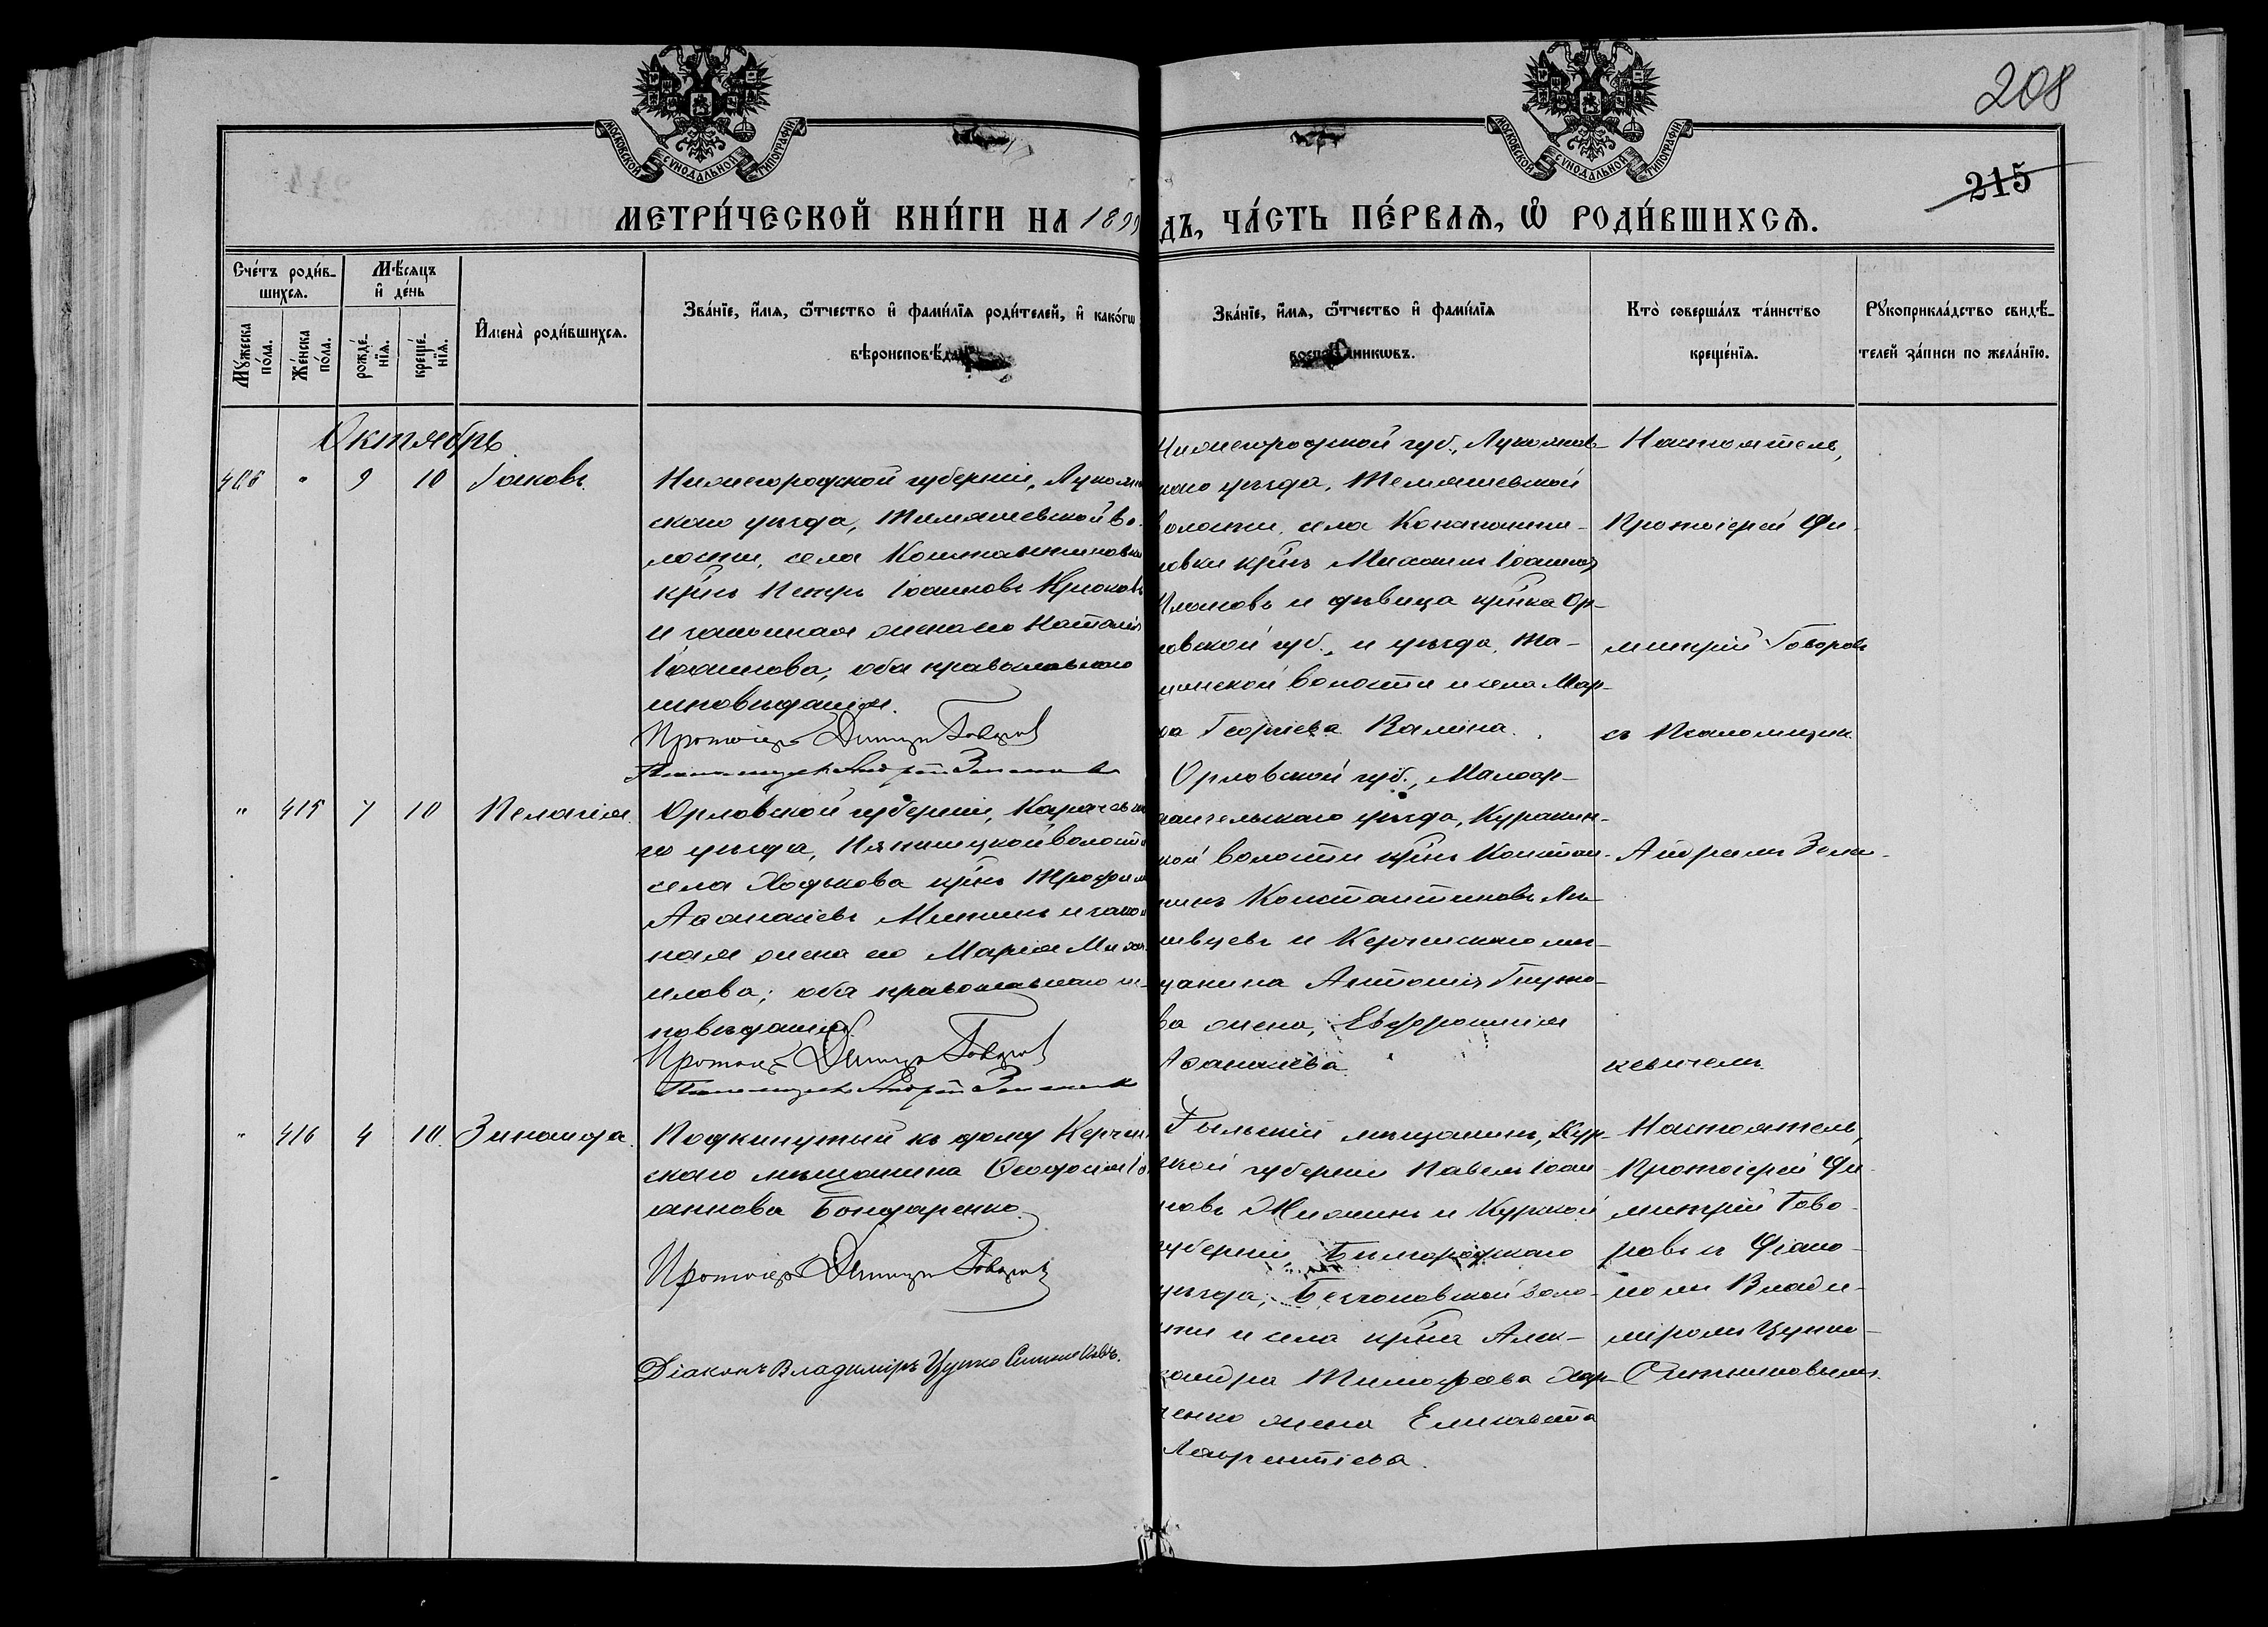 МОСКОВСКОЙ СѴНОДАЛЬНОЙ ТИПОГРАФІИ
МОСКОВСКОЙ СѴНОДАЛЬНОЙ ТИПОГРАФІИ
208
215
МЕТРИ́ЧЕСКОЙ КНИ́ГИ НА 1899
дъ, ЧА́СТЬ ПЕ́РВАѦ, Ѡ҆ РОДИ́ВШИХСѦ.
Сче́тъ роди́в-
шихсѧ.
Мꙋ́жеска по́ла.
Же́нска по́ла.
Мѣ́сяцъ
и҆ де́нь
рожде́-
нїѧ.
креще́-
нїѧ.
И҆мена̀ роди́вшихсѧ.
Зва́нїе, и҆́мѧ, ѻ҆́тчество и҆ фами́лїѧ роди́телей, и҆ како́гѡ
вѣроисповѣ́да
Зва́нїе, и҆́мѧ, ѻ҆́тчество и҆ фами́лїѧ
воспр нникѡвъ.
Кто̀ соверша́лъ та́инство
креще́нїѧ.
Рꙋкоприкла́дство свидѣ́-
телей за́писи по жела́нїю.
Октябрь
406 " 9 10 Іаковъ.
Нижегородской губерніи, Лукоян
скаго уѣзда, Темяшевской во-
лости, села Константиновки
кр͠нъ Петръ Іоанновъ Крюковъ
и законная жена его Наталія
Іоаннова, оба православнаго
исповѣданія.
Протоіер. Димитрій Говоровъ
Псаломщикъ Андрей
Нижегородской губ., Лукоянов-
скаго уѣзда, Темяшевской
волости, села Константи-
новки кр͠нъ Михаилъ Іоанновъ
и дѣвица кр͠нка Ор-
ловской губ., и уѣзда, Та-
волости и села Мар-
ѳа Георгіева Валина.
Настоятель,
Протоіерей Ди-
митрій Говоровъ
съ Псаломщик.
" 415 7 10 Пелагія.
Орловской губерніи, Карачевска-
го уѣзда, волости
села Хотькова кр͠нъ Трофим
Аѳанасіевъ Митинъ и закон
ная жена его Марія Миха-
илова; оба православнаго ис-
повѣданія
Протоіер. Димитрій Говоровъ
Псаломщикъ Андрей
Орловской губ., Малоар-
хангельскаго уѣзда, Куракин-
ской волости кр͠нъ Констан-
тинъ Константиновъ
и Керченскаго мѣ-
щанина Антонія
ва жена, Евфросинія
Аѳанасіева.
Андреемъ Зень-
кевичемъ.
" 416 4 10. Зинаида.
Подкинутый къ дому Керчен-
скаго мѣщанина Ѳеодосія Іо-
аннова Бондаренко.
Протоіер. Димитрій Говоровъ
Діаконъ Владиміръ Цушко Ситниковъ.
Рыльскій мѣщанинъ, Кур-
ской губерніи Павелъ Іоан
новъ и Курской
губерніи, Бѣлгородскаго
уѣзда, воло-
сти и села кр͠на Алек-
сандра Тимофеева Хар-
ченко жена Елисавета
Лаврентіева.
Настоятель,
Протоіерей Ди-
митрій Гово-
ровъ съ Діако-
номъ Влади-
міромъ Цушко-
Ситниковымъ.